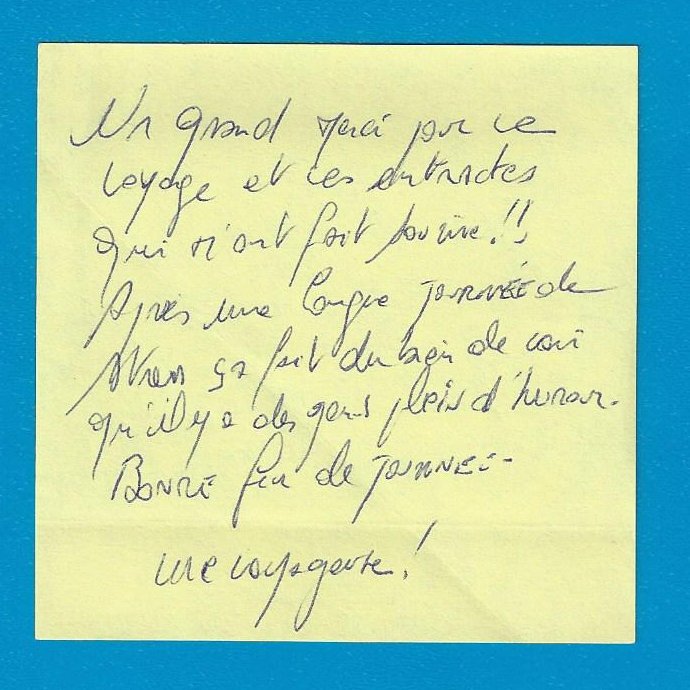 Un grand merci pour ce
voyage et ces entractes
qui m'ont fait sourire !!
Après une longue JOURNÉE de
stress ça fait du bien de voir
qu'il y a des gens plein d'humour.
BONNE fin de JOURNÉE -
une voyageuse !